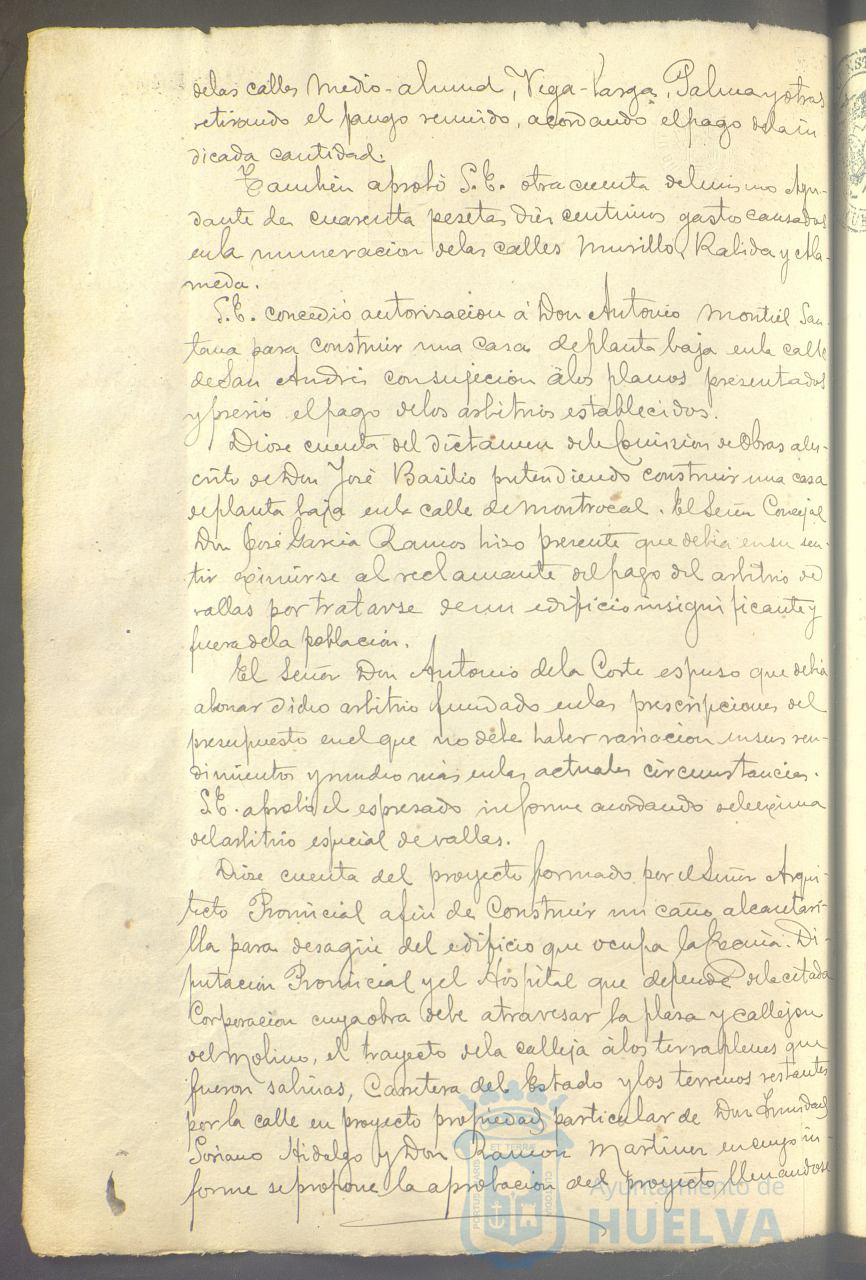 delas calles Medio-almud, Vega-Larga, Palma y otras
retirando el fango reunido, acordando el pago dela in
dicada cantidad.
Tambien aprobó S.E. otra cuenta del mismo Ayu-
dante de cuarenta pesetas diez centimos gastos causados
enla numeracion delas calles Murillo, Rabida y Ala-
meda.
S.E. concedió autorizacion á Don Antonio Montiel San-
tana para construir una casa de planta baja enla calle
de San Andrés con sujecion álos planos presentados
y prévio el pago delos arbitrios establecidos.
Diose cuenta del dictamen dela Comision de Obras al es-
crito de Don José Basilio pretendiendo construir una casa
de planta baja enla calle de Montrocal. El Señor Concejal
Don José Garcia Ramos hizo presente que debia en su sen-
tir eximirse al reclamante del pago del arbitrio de
vallas por tratarse de un edificio insignificante y
fuera dela poblacion.
El Señor Don Antonio dela Corte espuso que debia
abonar dicho arbitrio fundado enlas prescripciones del
presupuesto en el que no debe haber variacion en sus ren-
dimientos y mucho más enlas actuales circunstancias.
S.E. aprobó el espresado informe acordando se le exima
del arbitrio especial de vallas.
Diose cuenta del proyecto formado por el Señor Arqui-
tecto Provincial a fin de construir un caño alcantari-
lla para desagüe del edificio que ocupa la Excma. Di-
putacion Provincial y el Hospital que depende dela citada
Corporacion cuya obra debe atravesar la plaza y callejon
del Molino, el trayecto dela calleja álos terraplenes que
fueron salinas, Carretera del Estado y los terrenos restantes
por la calle en proyecto propiedad particular de Don Trinidad
Soriano Hidalgo y Don Ramon Martinez en cuyo in-
forme se propone la aprobacion del proyecto llenandose
Ayuntamiento de
HUELVA